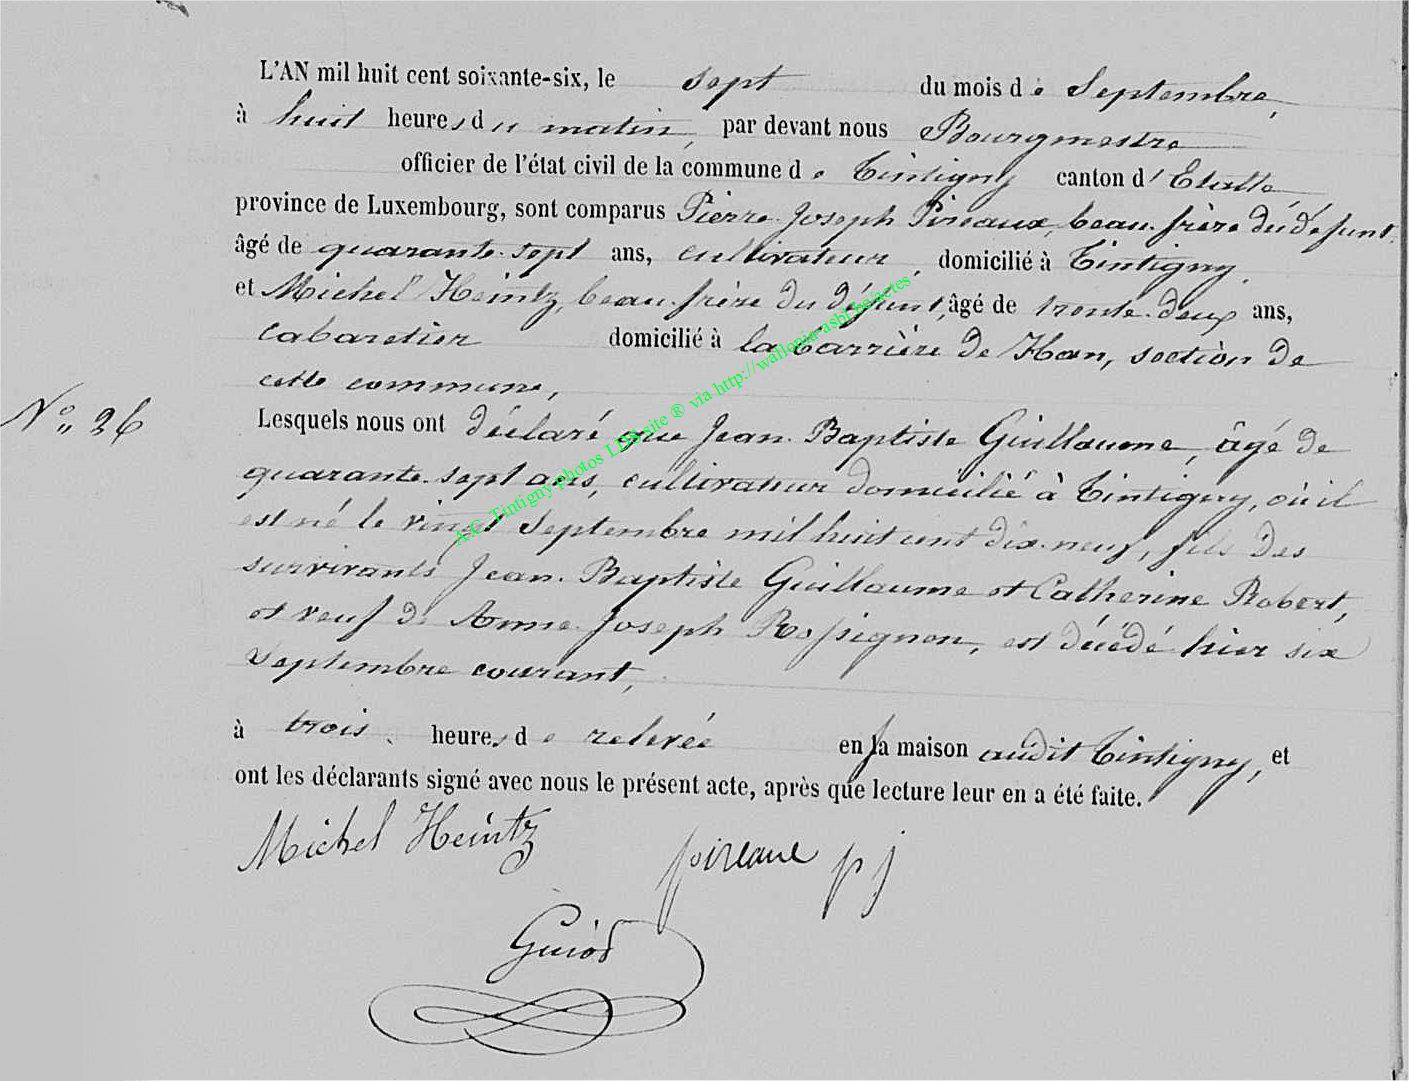 L'AN mil huit cent soixante-six, le sept du mois de Septembre,
à huit heures du matin, par devant nous Bourgmestre
officier de l'état civil de la commune de Tintigny canton d'Etalle
province de Luxembourg, sont comparus Pierre-Joseph Pireaux, beau-frère du défunt,
âgé de quarante-sept ans, cultivateur, domicilié à Tintigny,
et Michel Heintz, beau-frère du défunt, âgé de trente-deux ans,
cabaretier domicilié à la barrière de Han, section de
cette commune,
N° 36
Lesquels nous ont déclaré que Jean-Baptiste Guillaume, âgé de
quarante-sept ans, cultivateur domicilié à Tintigny, où il
est né le vingt Septembre mil huit cent dix-neuf, fils des
survivants Jean-Baptiste Guillaume et Catherine Robert,
et veuf de Anne-Joseph Rossignon, est décédé hier six
Septembre courant,
à trois heures de relevée en sa maison audit Tintigny, et
ont les déclarants signé avec nous le présent acte, après que lecture leur en a été faite.
Michel Heintz pireaux pj
Guiot
A.C. Tintigny photos LDS site ® via http://wallonia-asbl.be/actes